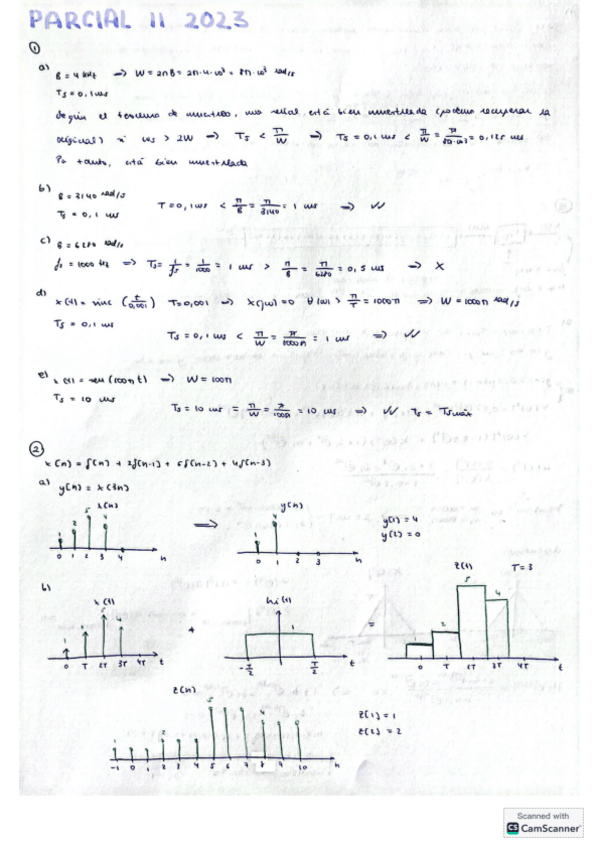 PARCIAL II 2023
①
a) B = 4 kHz → W = 2πB = 2π·4·10³ = 8π·10³ rad/s
Ts = 0,1 ms
Según el teorema de muestreo, una señal está bien muestreada (podemos recuperar la
original) si ωs > 2W → Ts < π/W → Ts = 0,1 ms < π/W = π/(8π·10³) = 0,125 ms
Por tanto, está bien muestreada
b) B = 3140 rad/s
Ts = 0,1 ms
T = 0,1 ms < π/B = π/3140 = 1 ms ⇒ ✓✓
c) B = 6280 rad/s
fs = 1000 Hz ⇒ Ts = 1/fs = 1/1000 = 1 ms > π/B = π/6280 = 0,5 ms → X
d) x(t) = sinc (t/0,001) T = 0,001 → X(jω) = 0 ∀|ω| > π/T = 1000π ⇒ W = 1000π rad/s
Ts = 0,1 ms
Ts = 0,1 ms < π/W = π/1000π = 1 ms ⇒ ✓✓
e) x(t) = sen(100πt) → W = 100π
Ts = 10 ms
Ts = 10 ms = π/W = π/100π = 10 ms ⇒ ✓✓ Ts = Tsmáx
②
x(n) = δ(n) + 2δ(n-1) + 5δ(n-2) + 4δ(n-3)
a) y(n) = x(3n)
x(n)
1 2 5 4
0 1 2 3 4 n
⇒
y(n)
1 4
0 1 2 3 n
y(1) = 4
y(2) = 0
b)
x(t)
1 5 4
0 T 2T 3T 4T t
*
hi(t)
1
-T/2 T/2 t
=
z(t) T = 3
1 2 5 4
0 T 2T 3T 4T t
z(n)
1 2 5 4
-1 0 1 2 3 4 5 6 7 8 9 10 n
z(1) = 1
z(2) = 2
Scanned with
CS CamScanner